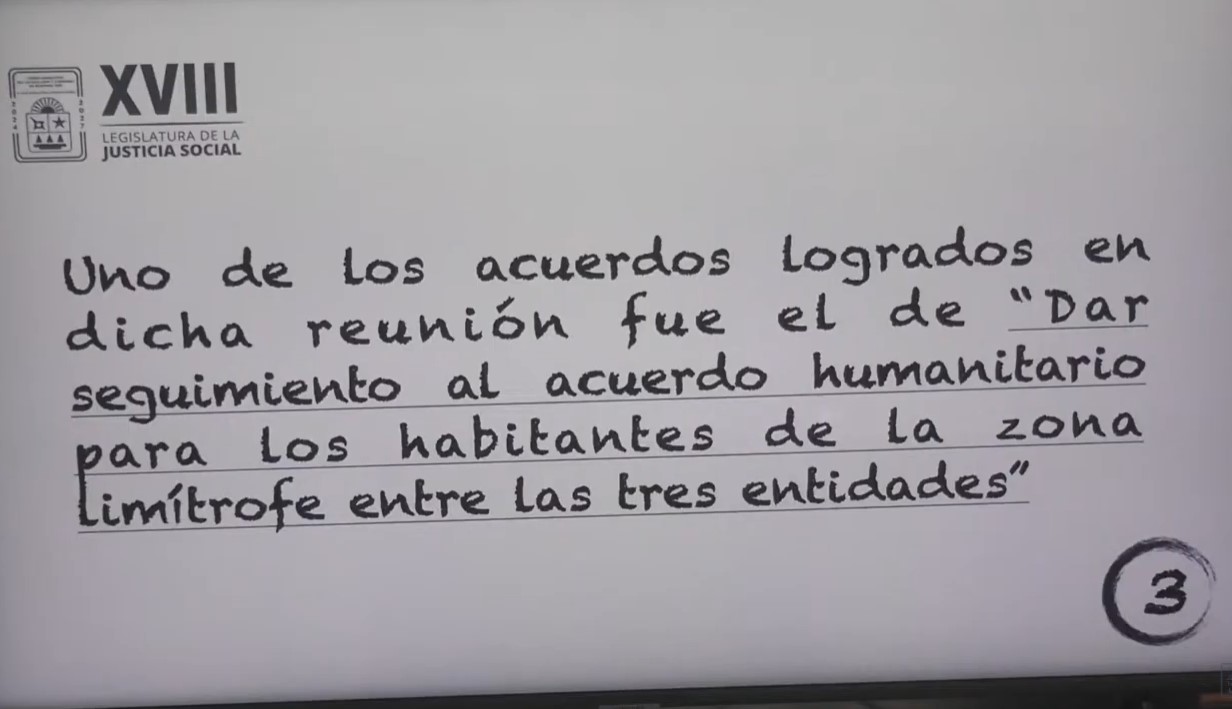 XVIII
LEGISLATURA DE LA
JUSTICIA SOCIAL
Uno de los acuerdos logrados en
dicha reunión fue el de “Dar
seguimiento al acuerdo humanitario
para los habitantes de la zona
limítrofe entre las tres entidades”
3